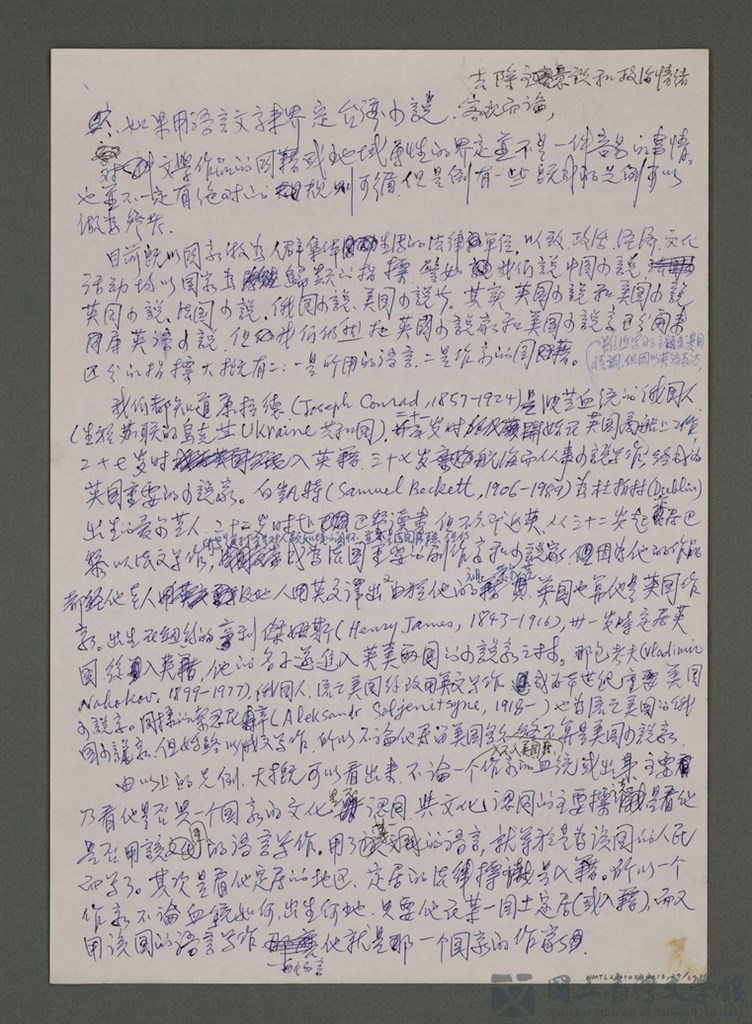 去除主觀意識和政治情緒
客觀而論,
如果用語言文字來界定台語小說,
對文學作品的國籍或地域屬性的界定並不是一件容易的事情。
也並不一定有絕對的規則可循,但是倒有一些既成的先例可以
做為參考。
目前既以國家做為人群集體生活的法律單位,以致政治、經濟、文化
活動均以國家為歸類的指標。譬如我們說中國小說、
英國小說、法國小說、俄國小說、美國小說等。其實英國小說和美國小說
同屬英語小說,但我們仍然把英國小說家和美國小說家區分開來
區分的指標大概有二:一是所用的語言,二是作家的國籍。
我們都知道康拉德 (Joseph Conrad, 1857-1924) 是波蘭血統的俄國人
(生於蘇聯的烏克蘭 Ukraine 共和國),二十一歲時開始在英國商船上工作,
二十七歲時入英籍,三十七歲航海而從事小說寫作,終成為
英國重要的小說家。白凱特 (Samuel Beckett, 1906-1989) 為杜柏林 (Dublin)
出生的愛爾蘭人,三十二歲起定居巴
黎,以法文寫作,成為法國重要的劇作家和小說家,但因為他的作品
都經他本人或他人用英文譯出,又由於他的祖籍,英國也算他是英國作
家。出生在紐約的亨利傑姆斯 (Henry James, 1843-1916),卅一歲時定居英
國,後入英籍,他的名字遂進入英美兩國的小說家之林。那包考夫 (Vladimir
Nabokov, 1899-1977),俄國人,流亡美國後改用英文寫作,成為本世紀重要美國
小說家。同樣的索忍尼辛 (Aleksandr Soljenitsyne, 1918-) 也為流亡美國的俄
國小說家,但始終以俄文寫作,所以不論他居留美國多久,入不入美國籍,終不算是美國小說家。
由以上的先例,大概可以看出來,不論一個作家的血統或出身,主要
乃看他是否與一個國家的文化認同,與文化認同的主要標識是看他
是否用該國的語言寫作。用了某國的語言,就等於是為該國的人民
而寫了。其次是看他定居的地區,定居的法律標識是入籍。所以一個
作家不論血統如何,出生何地,只要他在某一國土定居(或入籍),而又
用該國的語言寫作,一般而言他就是那一個國家的作家。
國立臺灣文學館
National Museum of Taiwan Literature